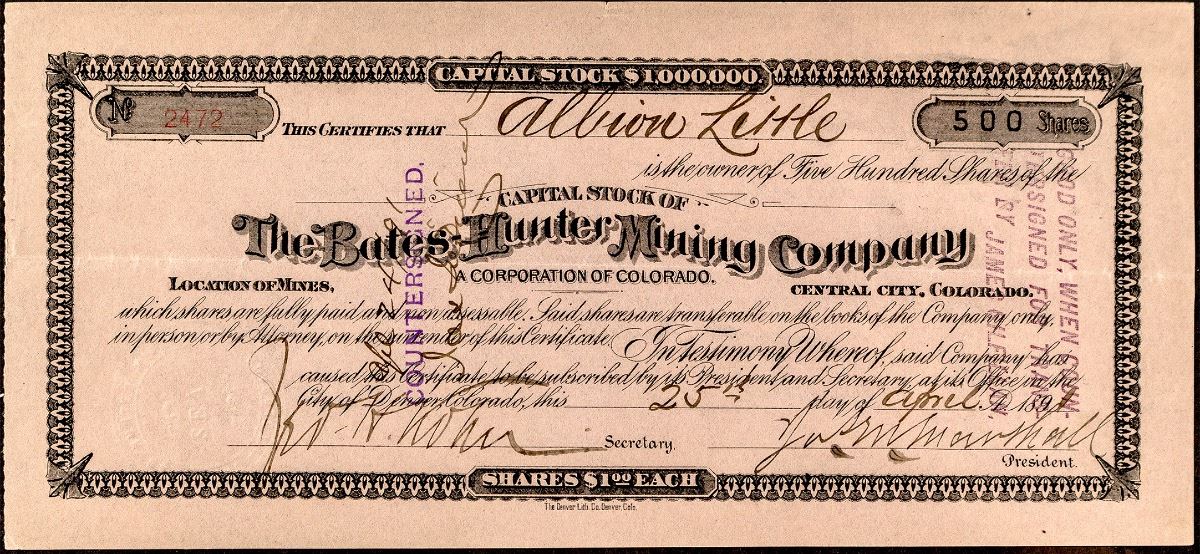 CAPITAL STOCK $1,000,000.
No 2472
THIS CERTIFIES THAT Albion Little
500 Shares
is the owner of Five Hundred Shares of the
CAPITAL STOCK OF
The Bates-Hunter Mining Company
A CORPORATION OF COLORADO.
LOCATION OF MINES,
CENTRAL CITY, COLORADO.
which shares are fully paid and non assessable. Said shares are transferable on the books of the Company, only
in person or by Attorney, on the surrender of this Certificate. In Testimony Whereof, said Company has
caused this Certificate to be subscribed by its President and Secretary, at its Office in the
City of Denver, Colorado, this 25th day of April A.D. 1891
Secretary.
President.
SHARES $1.00 EACH
The Denver Lith. Co. Denver, Colo.
COUNTERSIGNED.
GOOD ONLY, WHEN COUN-
TERSIGNED FOR TRANS-
FER BY JAMES